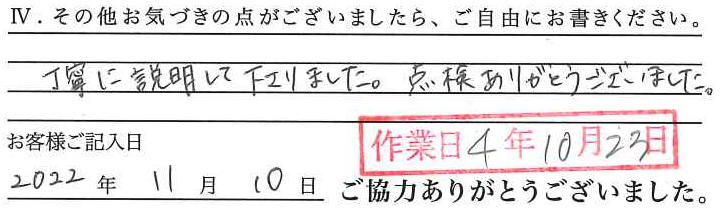 Ⅳ．その他お気づきの点がございましたら、ご自由にお書きください。
丁寧に説明して下さりました。点検ありがとうございました。
お客様ご記入日
作業日4年10月23日
2022年11月10日
ご協力ありがとうございました。